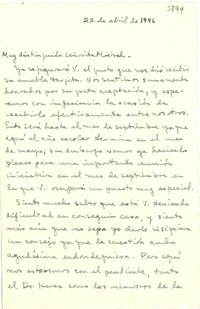 3794
22 de abril de 1946
Muy distinguida Señorita Mistral.
Ya se figurará V. el gusto que nos dió recibir
su amable tarjeta. Nos sentimos sumamente
honrados por su grata aceptación, y espe-
ramos con impaciencia la ocasión de
recibirla efectivamente entre nosotros.
Esto será hasta el mes de septiembre ya que
aquí el año escolar termina en el mes
de mayo; sin embargo vamos ya haciendo
planes para una importante reunión
iniciativa en el mes de septiembre en
la que V. ocupará un puesto muy especial.
Siento mucho saber que está V. teniendo
dificultad en conseguir casa, y siento
más aún que no sepa yo darle ni siquiera
un consejo ya que la cuestión anda
agudísima en dondequiera. Pero aquí
nos estaremos con el pendiente, tanto
el Dr. como los miembros de la